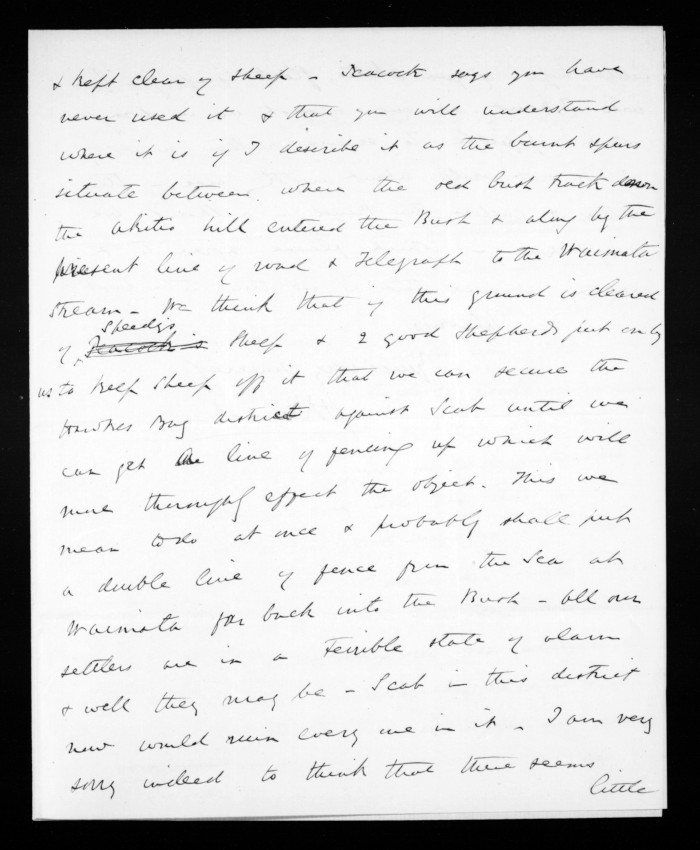 & kept clear of sheep - Peacock says you have
never used it & that you will understand
where it is if I describe it as the burnt spurs
situate between where the old bush track down
the akitio hill entered the Bush & along by the
present line of road & Telegraph to the Waimata
Stream - We think that if this ground is cleared
Speedys
of Peacock's Sheep & 2 good Shepherds put on by
us to keep Sheep off it that we can secure the
Hawkes Bay district against Scab until we
can get a line of fencing up which will
more thoroughly effect the object. This we
mean to do at once & probably shall put
a double line of fence from the Sea at
Waimata far back into the Bush - All our
settlers are in a Terrible state of alarm
& well they may be - Scab in this district
now would ruin every one in it - I am very
sorry indeed to think that there seems
little